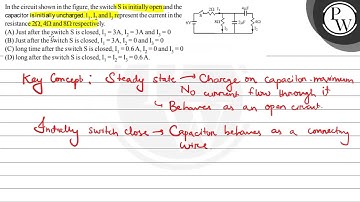 In the circuit shown in the figure, the switch S is initially open and the
capacitor is initially uncharged. I₁, I₂ and I₃ represent the current in the
resistance 2Ω, 4Ω and 8Ω respectively.
(A) Just after the switch S is closed, I₁ = 3A, I₂ = 3A and I₃ = 0
(B) Just after the switch S is closed, I₁ = 3A, I₂ = 0 and I₃ = 0
(C) long time after the switch S is closed, I₁ = 0.6A, I₂ = 0 and I₃ = 0
(D) long after the switch S is closed, I₁ = I₂ = I₃ = 0.6A.
Key Concept: Steady state → Charge on capacitor maximum
No current flow through it
↳ Behaves as an open circuit.
Initially switch close → Capacitor behaves as a connecting
wire.